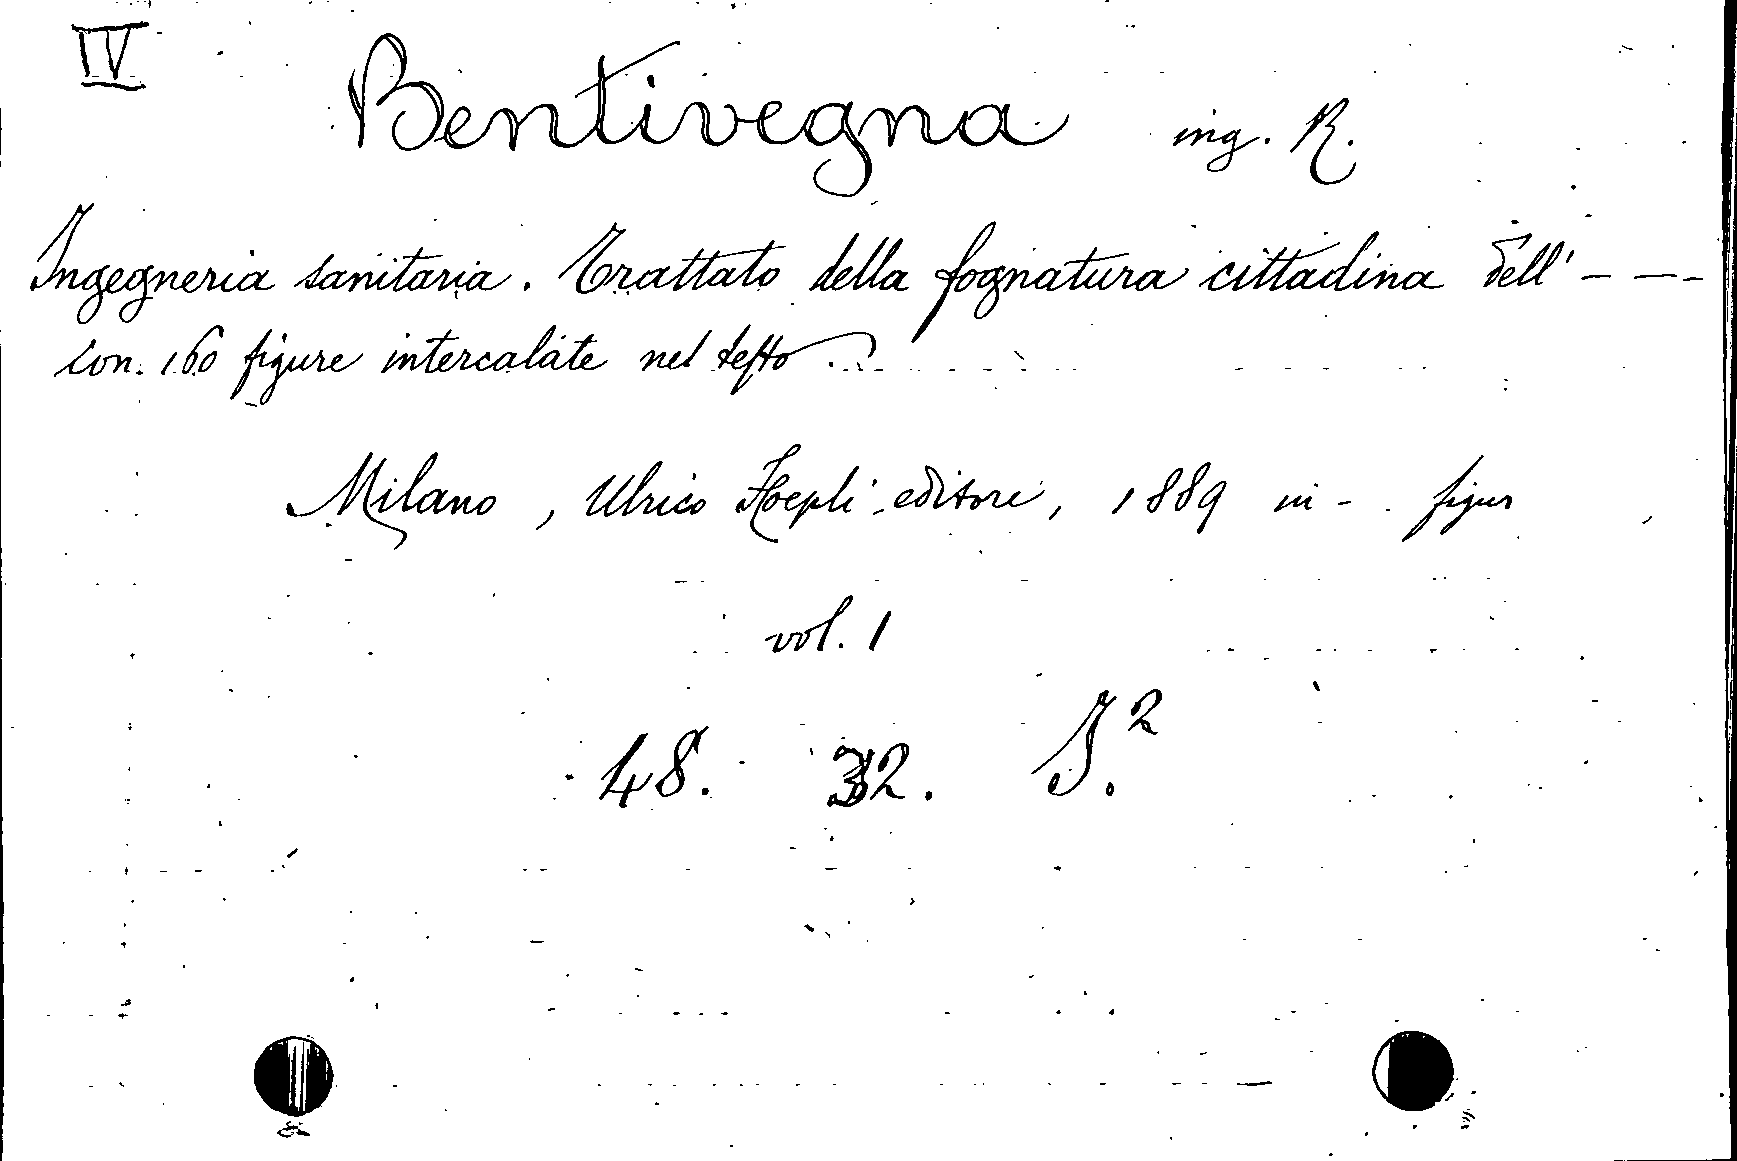 IV
Bentivegna ing. R.
Ingegneria sanitaria. Trattato della fognatura cittadina dell' - - -
con 160 figure intercalate nel testo.
Milano, Ulrico Hoepli editore, 1889 in - figur
vol. 1
48. 32. I.²